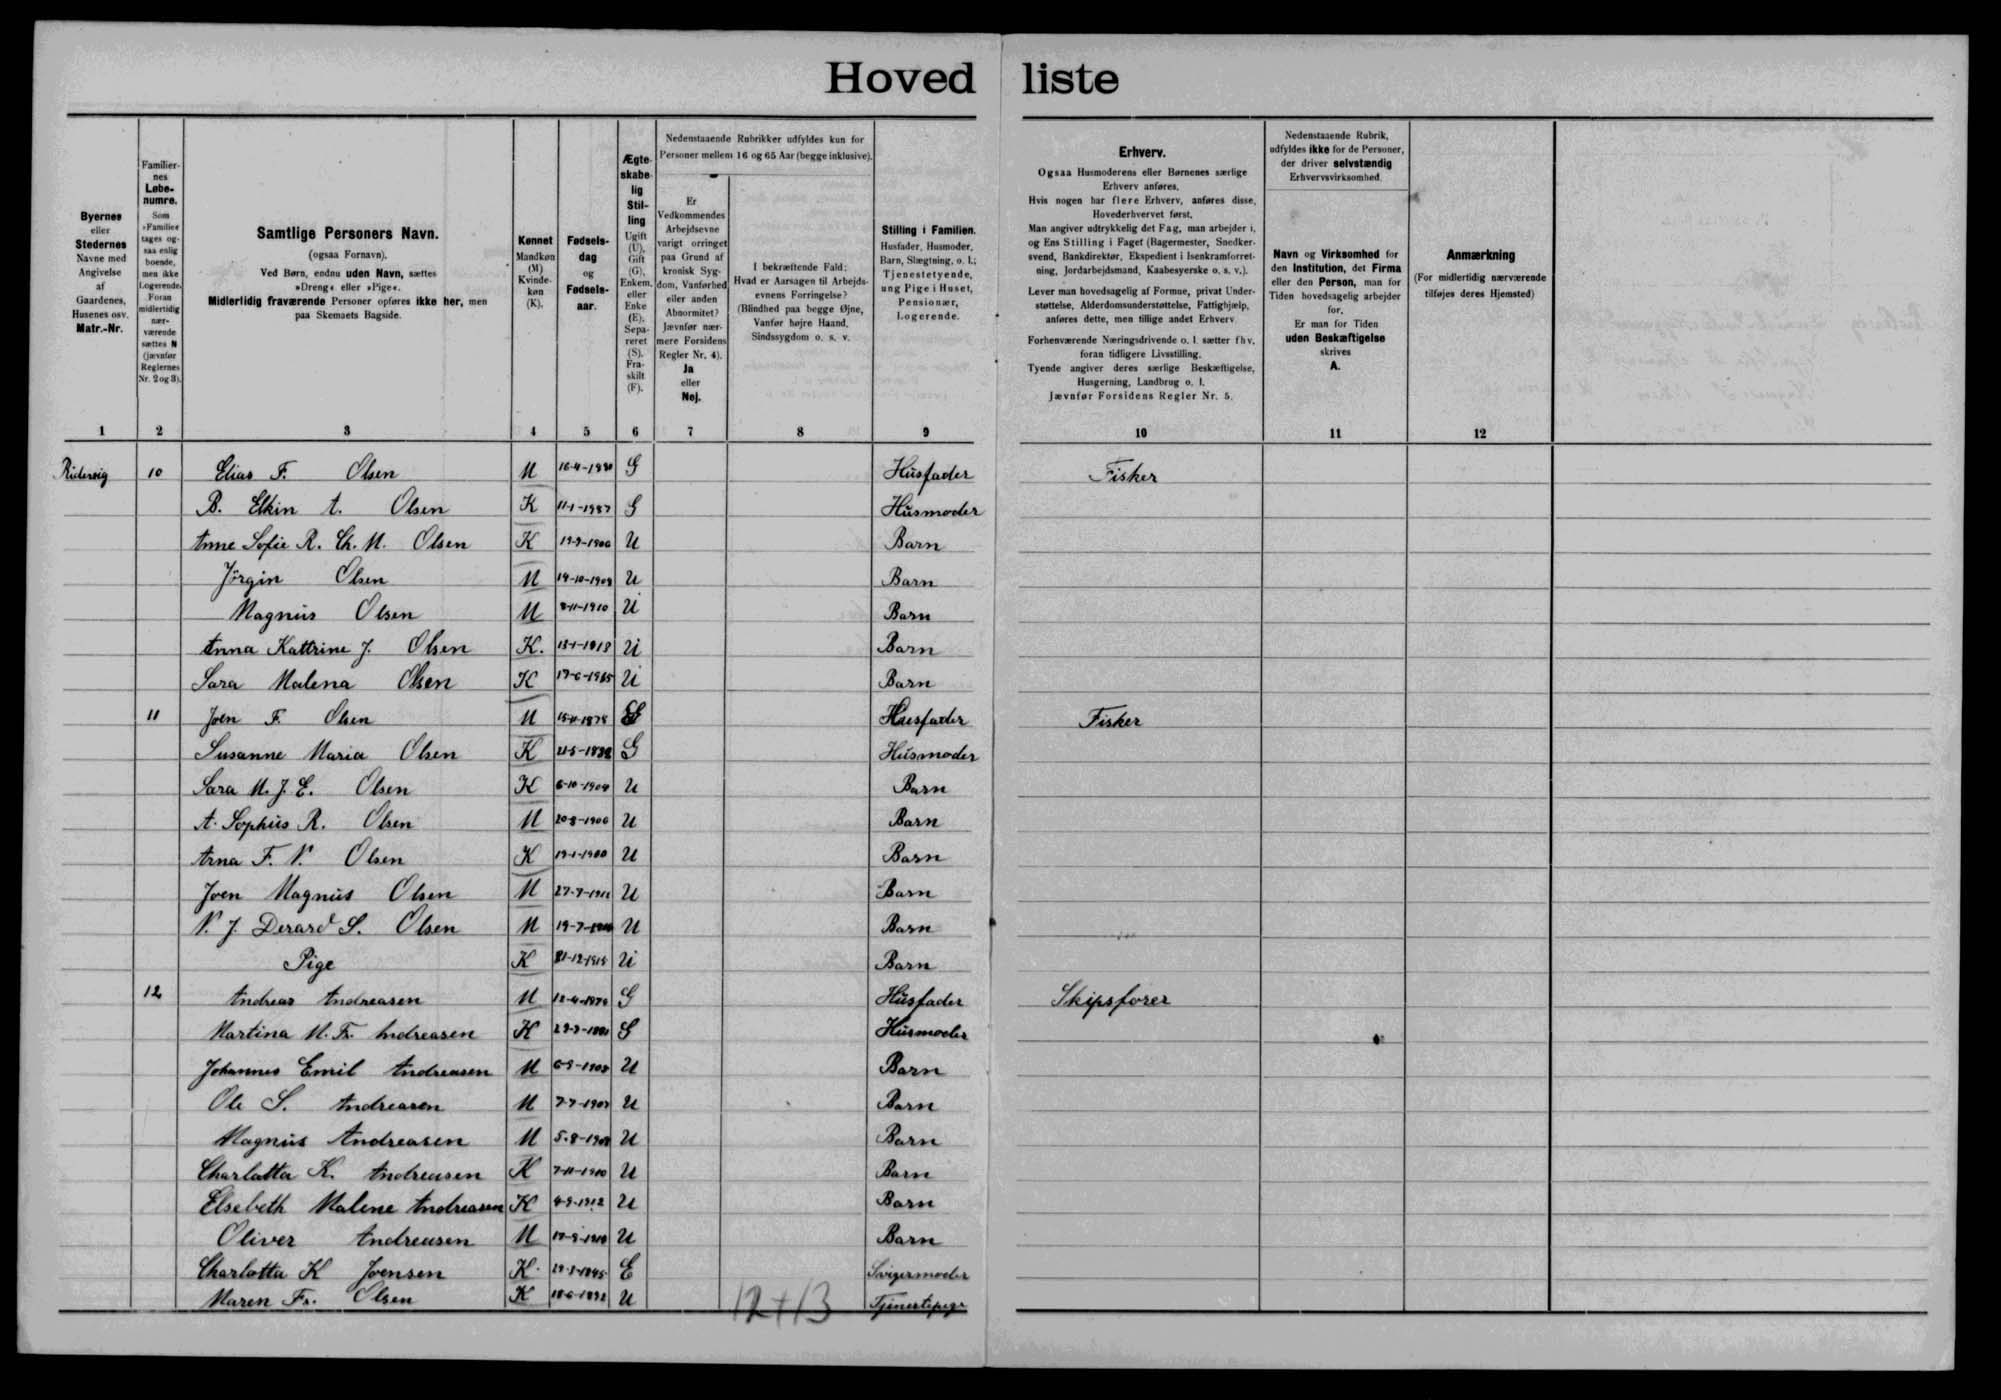 Hoved liste
Byernes eller Stedernes Navne med Angivelse af Gaardenes, Husenes osv. Matr.-Nr.
Familiernes Løbenumre. Som »Familie« tages ogsaa enlig boende, men ikke Logerende. Foran midlertidig nærværende sættes N (jævnfør Reglernes Nr. 2 og 3).
Samtlige Personers Navn.
(ogsaa Fornavn).
Ved Børn, endnu uden Navn, sættes
»Dreng« eller »Pige«.
Midlertidig fraværende Personer opføres ikke her, men
paa Skemaets Bagside.
Kønnet Mandkøn (M) Kvindekøn (K).
Fødselsdag og Fødselsaar.
Ægteskabelig Stilling Ugift (U), Gift (G), Enkem. eller Enke (E), Separeret (S), Fraskilt (F).
Nedenstaaende Rubrikker udfyldes kun for
Personer mellem 16 og 65 Aar (begge inklusive).
Er Vedkommendes Arbejdsevne varigt forringet paa Grund af kronisk Sygdom, Vanførhed eller anden Abnormitet? Jævnfør nærmere Forsidens Regler Nr. 4). Ja eller Nej.
I bekræftende Fald: Hvad er Aarsagen til Arbejdsevnens Forringelse? (Blindhed paa begge Øjne, Vanfør højre Haand, Sindssygdom o. s. v.
Stilling i Familien. Husfader, Husmoder, Barn, Slægtning, o. l.; Tjenestetyende, ung Pige i Huset, Pensionær, Logerende.
Erhverv.
Ogsaa Husmoderens eller Børnenes særlige
Erhverv anføres.
Hvis nogen har flere Erhverv, anføres disse,
Hovederhvervet først.
Man angiver udtrykkelig det Fag, man arbejder i,
og Ens Stilling i Faget (Bagermester, Snedkersvend, Bankdirektør, Ekspedient i Isenkramforretning, Jordarbejdsmand, Kaabesyerske o. s. v.).
Lever man hovedsagelig af Formue, privat Understøttelse, Alderdomsunderstøttelse, Fattighjælp,
anføres dette, men tillige andet Erhverv
Forhenværende Næringsdrivende o. l. sætter fhv.
foran tidligere Livsstilling.
Tyende angiver deres særlige Beskæftigelse,
Husgerning, Landbrug o. l.
Jævnfør Forsidens Regler Nr. 5.
Nedenstaaende Rubrik,
udfyldes ikke for de Personer,
der driver selvstændig
Erhvervsvirksomhed.
Navn og Virksomhed for
den Institution, det Firma
eller den Person, man for
Tiden hovedsagelig arbejder
for.
Er man for Tiden
uden Beskæftigelse
skrives
A.
Anmærkning
(For midlertidig nærværende
tilføjes deres Hjemsted)
1 2 3 4 5 6 7 8 9 10 11 12
10 Elias F. Olsen M G Husfader Fisker
B. Elkin A. Olsen K G Husmoder
Anne Sofie R. Ch. M. Olsen K U Barn
Jörgin Olsen M U Barn
Magnus Olsen M 8-11-1910 U Barn
Anna Kattrine J. Olsen K. U Barn
Sara Malena Olsen K U Barn
11 Joen F. Olsen M Husfader Fisker
Susanne Maria Olsen K G Husmoder
Sara M. J. E. Olsen K 6-10-1904 U Barn
A. Sophus R. Olsen M 20-8-1906 U Barn
Arna F. N. Olsen K U Barn
Joen Magnus Olsen M U Barn
N. J. Derard S. Olsen M U Barn
Pige K U Barn
12 Andreas Andreasen M G Husfader Skipsforer
Martina M. Fr. Andreasen K G Husmoder
Johannes Emil Andreasen M U Barn
Ole S. Andreasen M U Barn
Magnus Andreasen M U Barn
Charlotta K. Andreasen K 7-11-1910 U Barn
Elsebeth Malene Andreasen K 4-9-1912 U Barn
Oliver Andreasen M U Barn
Charlotta K Joensen K. E Svigermoder
Maren Fr. Olsen K 18-6-1892 U Tjenestepige
12+13